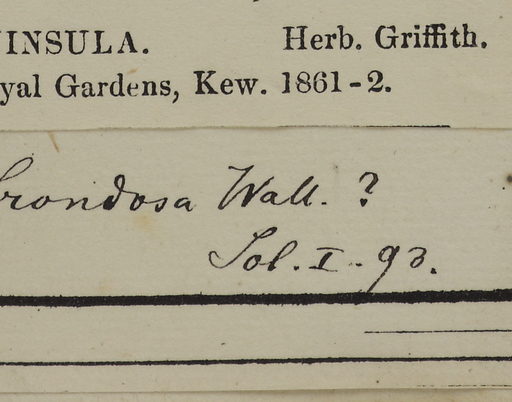 INSULA. Herb. Griffith.
yal Gardens, Kew. 1861-2.
frondosa Wall. ?
Sol. I. 93.